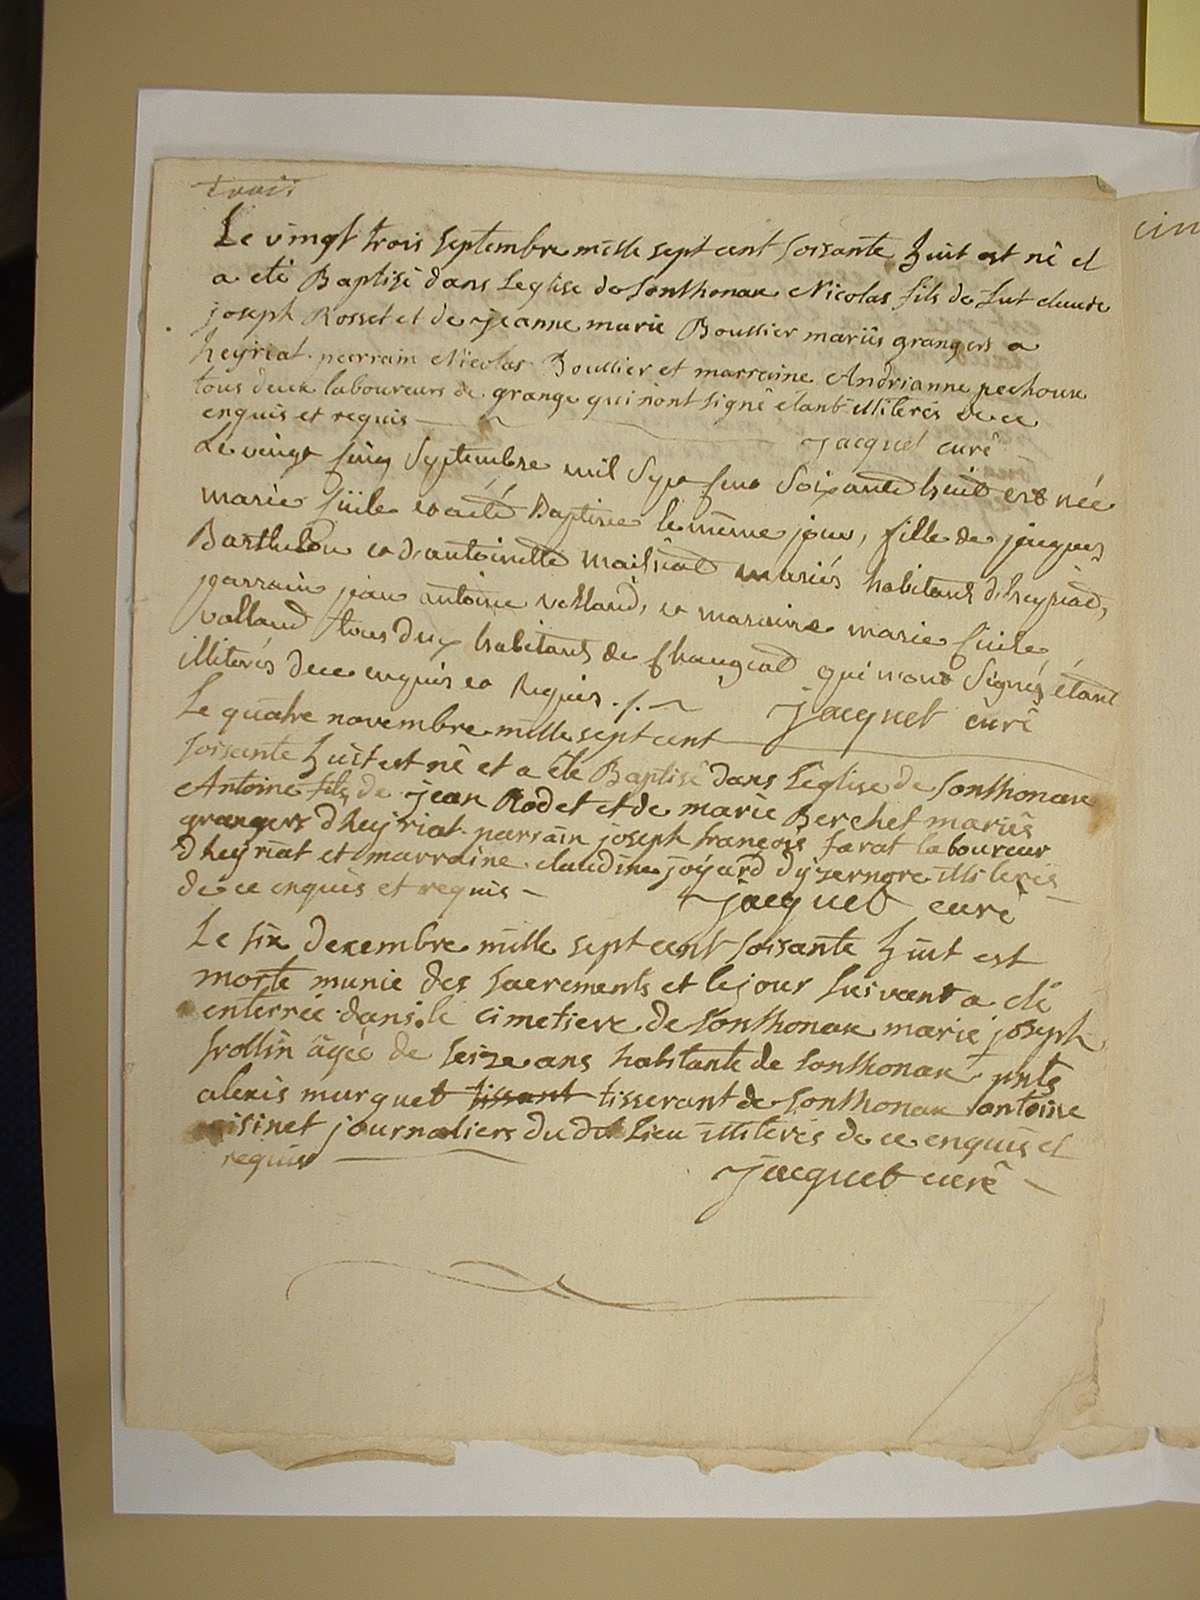 trois
Le vingt trois septembre mille sept cent soisante huit est né et
a eté Baptisé dans Leglise de Sonthonax Nicolas fils de Lut claude
joseph Rosset et de jeanne marie Boullier mariés grangers a
heyriat. parrain Nicolas Boullier et marraine Andrianne pechoux
tous deux laboureurs de grange qui nont signé etant illiterés de ce
enquis et requis
jacquet curé
Le vingt cinq septembre mil sept cens soixante huit est née
marie et a été Baptisée le même jour, fille de jacques
Barthelon et d'antoinette mariés habitants d'heyriat,
parrain jean antoine volland, et maraine marie
volland tous deux habitants de qui n'ont signés étant
illiterés de ce enquis et Requis ./.
jacquet curé
Le quatre novembre mille sept cent
soisante huit est né et a ete Baptisé dans Léglise de Sonthonax
Antoine fils de jean Rodet et de marie Berchet mariés
grangers dheyriat. parrain joseph françois farat laboureur
dheyriat et marraine claudine joyard dyzernore illiterés
de ce enquis et requis
jacquet curé
Le six decembre mille sept cent soisante huit est
morte munie des sacrements et le jour suivant a eté
enterrée dans le cimetiere de Sonthonax marie joseph
frollin âgée de seize ans habitante de Sonthonax pnts
alexis murguet tissant tisserant de Sonthonax antoine
journaliers du dit Lieu illiterés de ce enquis et
requis
jacquet curé
cin